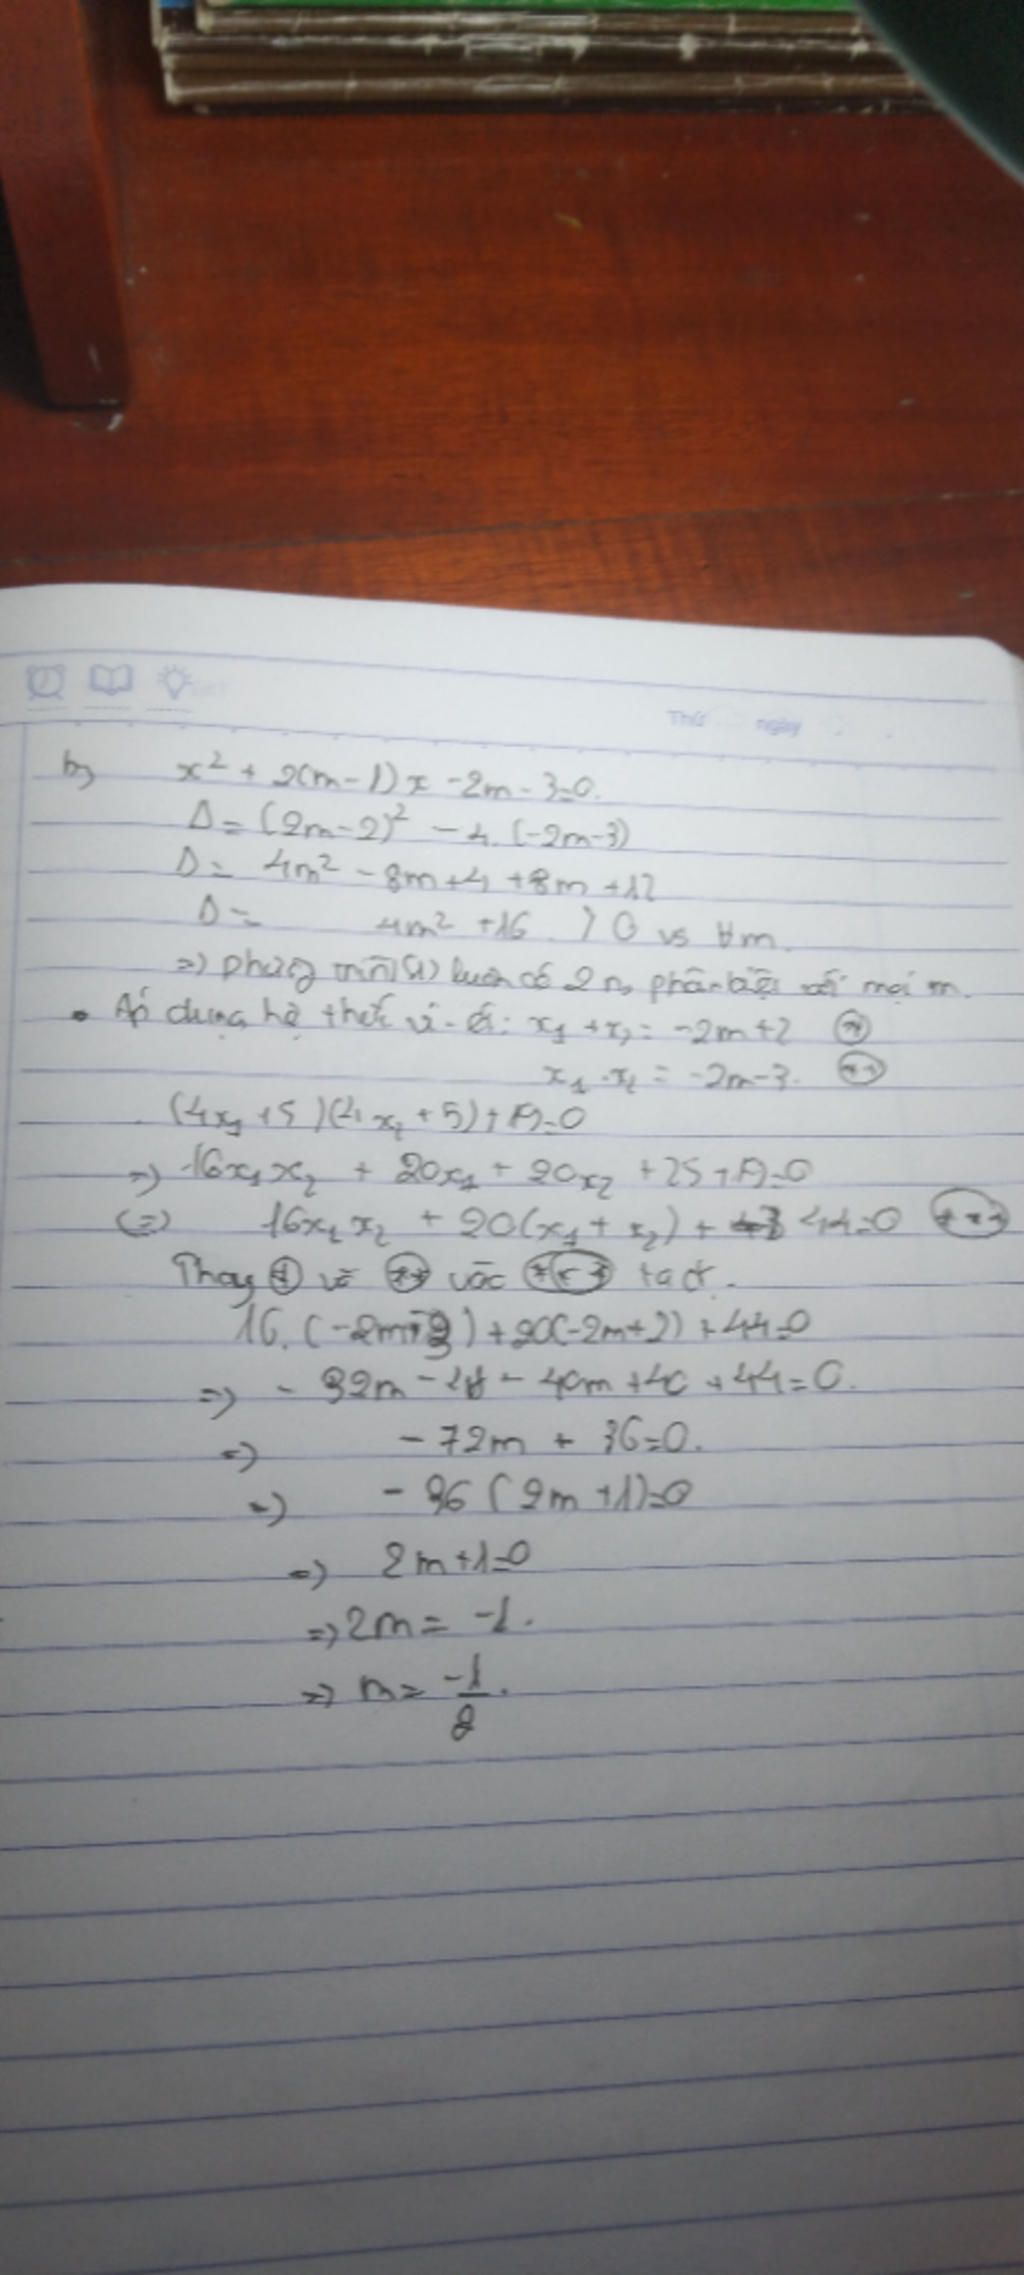 Thứ ngày
b) x² + 2(m-1)x - 2m - 3=0.
Δ = (2m-2)² - 4.(-2m-3)
Δ = 4m² - 8m+4 +8m +12
Δ = 4m² +16 > 0 vs ∀m.
=> phương trình (1) luôn có 2 n₀ phân biệt với mọi m.
• Áp dụng hệ thức vi-ét: x₁ + x₂ = -2m+2 (*)
x₁ . x₂ = -2m-3. (**)
(4x₁ +5)(4x₂ +5)+19=0
=> 16x₁x₂ + 20x₁ + 20x₂ +25 +19=0
(=) 16x₁x₂ + 20(x₁ + x₂) + 44=0 (***)
Thay (*) và (**) vào (***) ta đt.
16.(-2m-3)+20(-2m+2)+44=0
=> -32m - 48 - 40m +40 +44=0.
=> -72m + 36=0.
=> -36(2m+1)=0
=> 2m+1=0
=> 2m = -1.
=> m = -1/2.